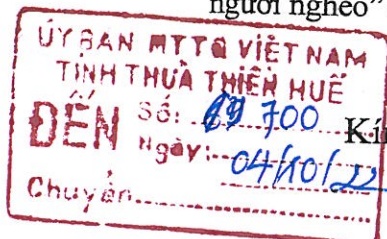 người nghèo”
ỦY BAN MTTQ VIỆT NAM
TỈNH THỪA THIÊN HUẾ
ĐẾN Số: 700
Kí
Ngày: 04/10/22
Chuyển